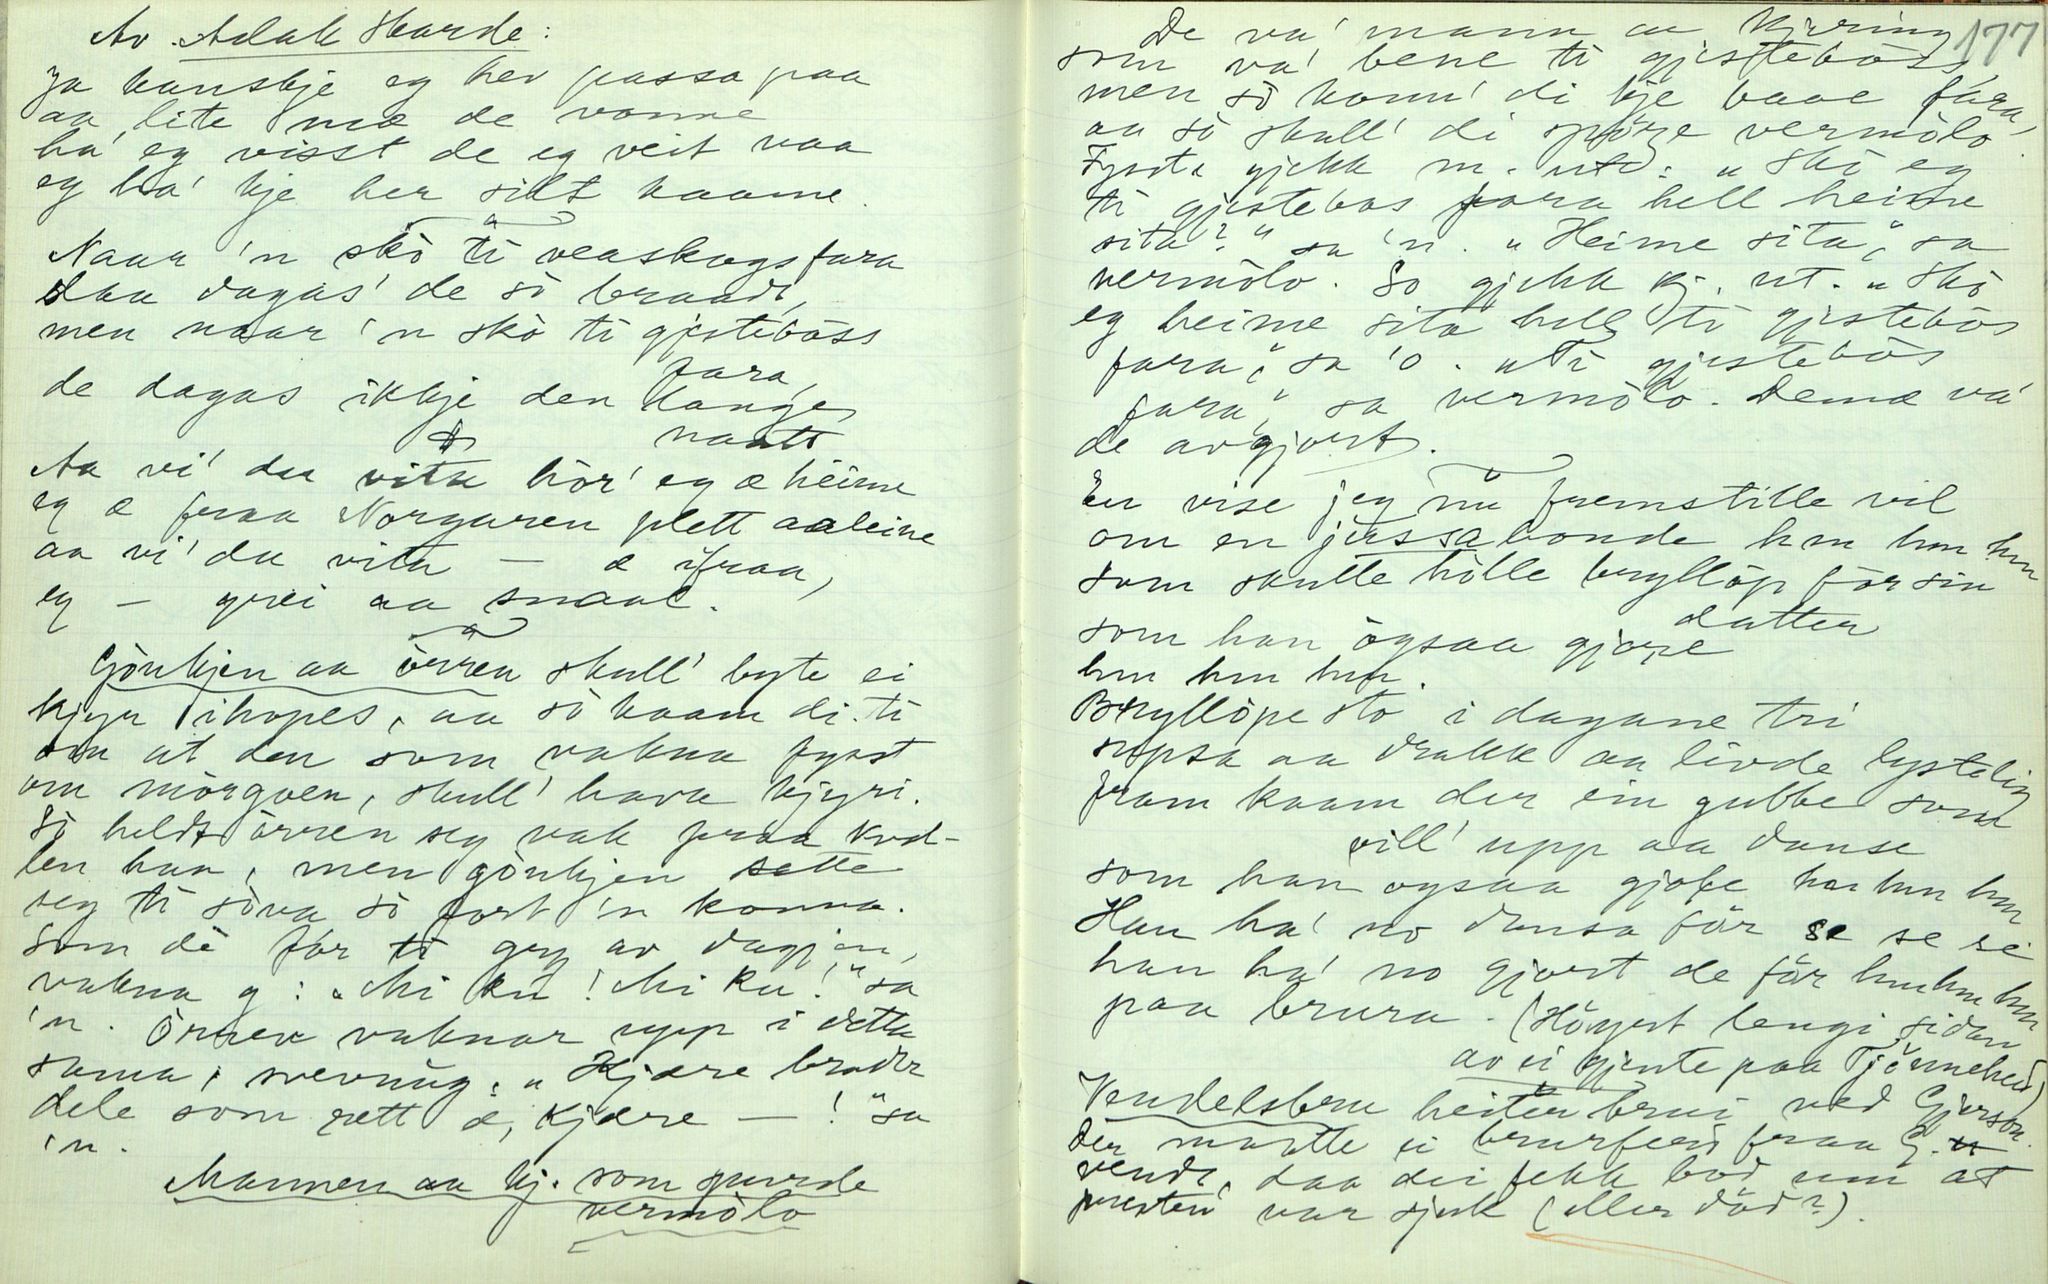 Av Aslak Harde:
Ja kanskje eg hev passa paa
aa lite mæ de vonne
ha' eg visst de eg veit naa
eg ha' kje her silt kaame.
Naar 'n skò ti veaskogs fara
daa dagas' de sò braadt,
men naar 'n skò ti gjestebòss
fara,
de dagas ikkje den lange
naatt
Aa vi' du vita hòr' eg æ heime
eg æ fraa Norgaren plett aaleine
aa vi' du vita — æ ifraa,
eg — grei aa smaal.
Gònkjen aa örren skull' byte ei
kjyr ihopes, aa sò kaam di ti
om at den som vakna fyst
om mòrgoen, skull' hava kjyri.
Sò heldt örren seg vak fraa kvel-
len han, men gònkjen sette
seg ti sòva sò fort 'n konna.
Som dè fòr ti gry av dagjen,
vakna g: "Mi ku! Mi ku!" sa
'n. Örren vaknar upp i detta
sama, svevning: "Kjære broder
dele som rett æ, kjære — !" sa
'n.
Mannen aa kj. som spurde
vermòlo
177
De va' mann aa kjering
som va' bene ti gjestebòss,
men sò konn' di kje baae fara,
aa sò skull' di spörre vermòlo.
Fyst gjekk m. ut: "Skò eg
ti gjestebòs fara hell heime
sita?" sa 'n. "Heime sita", sa
vermòlo. So gjekk kj. ut. "Skò
eg heime sita hell ti gjestebòs
fara", sa 'o. "Ti gjestebòs
fara", sa vermòlo. Demæ va'
de avgjort.
En vise jeg nu fremstille vil
om en jassabonde hm hm hm
som skulle hölle bryllöp för sin
datter
som han ögsaa gjore
hm hm hm.
Bryllöpe sto i dagane tri
supsa aa drakk aa livde lysteli
fram kaam der ein gubbe som
vill' upp aa danse
som han ogsaa gjore hm hm hm
Han ha' no dansa för se se si
han ha' no gjort de för hm hm hm
paa brura. (Höyrt lengi sidan
av ei gjente paa Tjönnehei)
Vendelsbru heiter brui ved Gjerson.
Der maatte ei brurferd fraa G.
vende, daa dei fekk bod um at
presten var sjuk (eller död?).